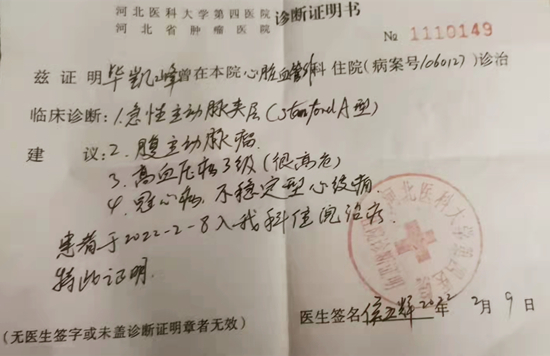 河北医科大学第四医院
河北省肿瘤医院
诊断证明书
№ 1110149
兹证明毕凯峰曾在本院心脏血管外科住院(病案号106012)诊治
临床诊断:1.急性主动脉夹层(Stanford A型)
建 议:2.腹主动脉瘤.
3.高血压病3级(很高危)
4.冠心病.不稳定型心绞痛
患者于2022-2-8入我科住院治疗
特此证明.
河北医科大学第四医院
诊断证明
医生签名 2022年 2月 9日
(无医生签字或未盖诊断证明章者无效)